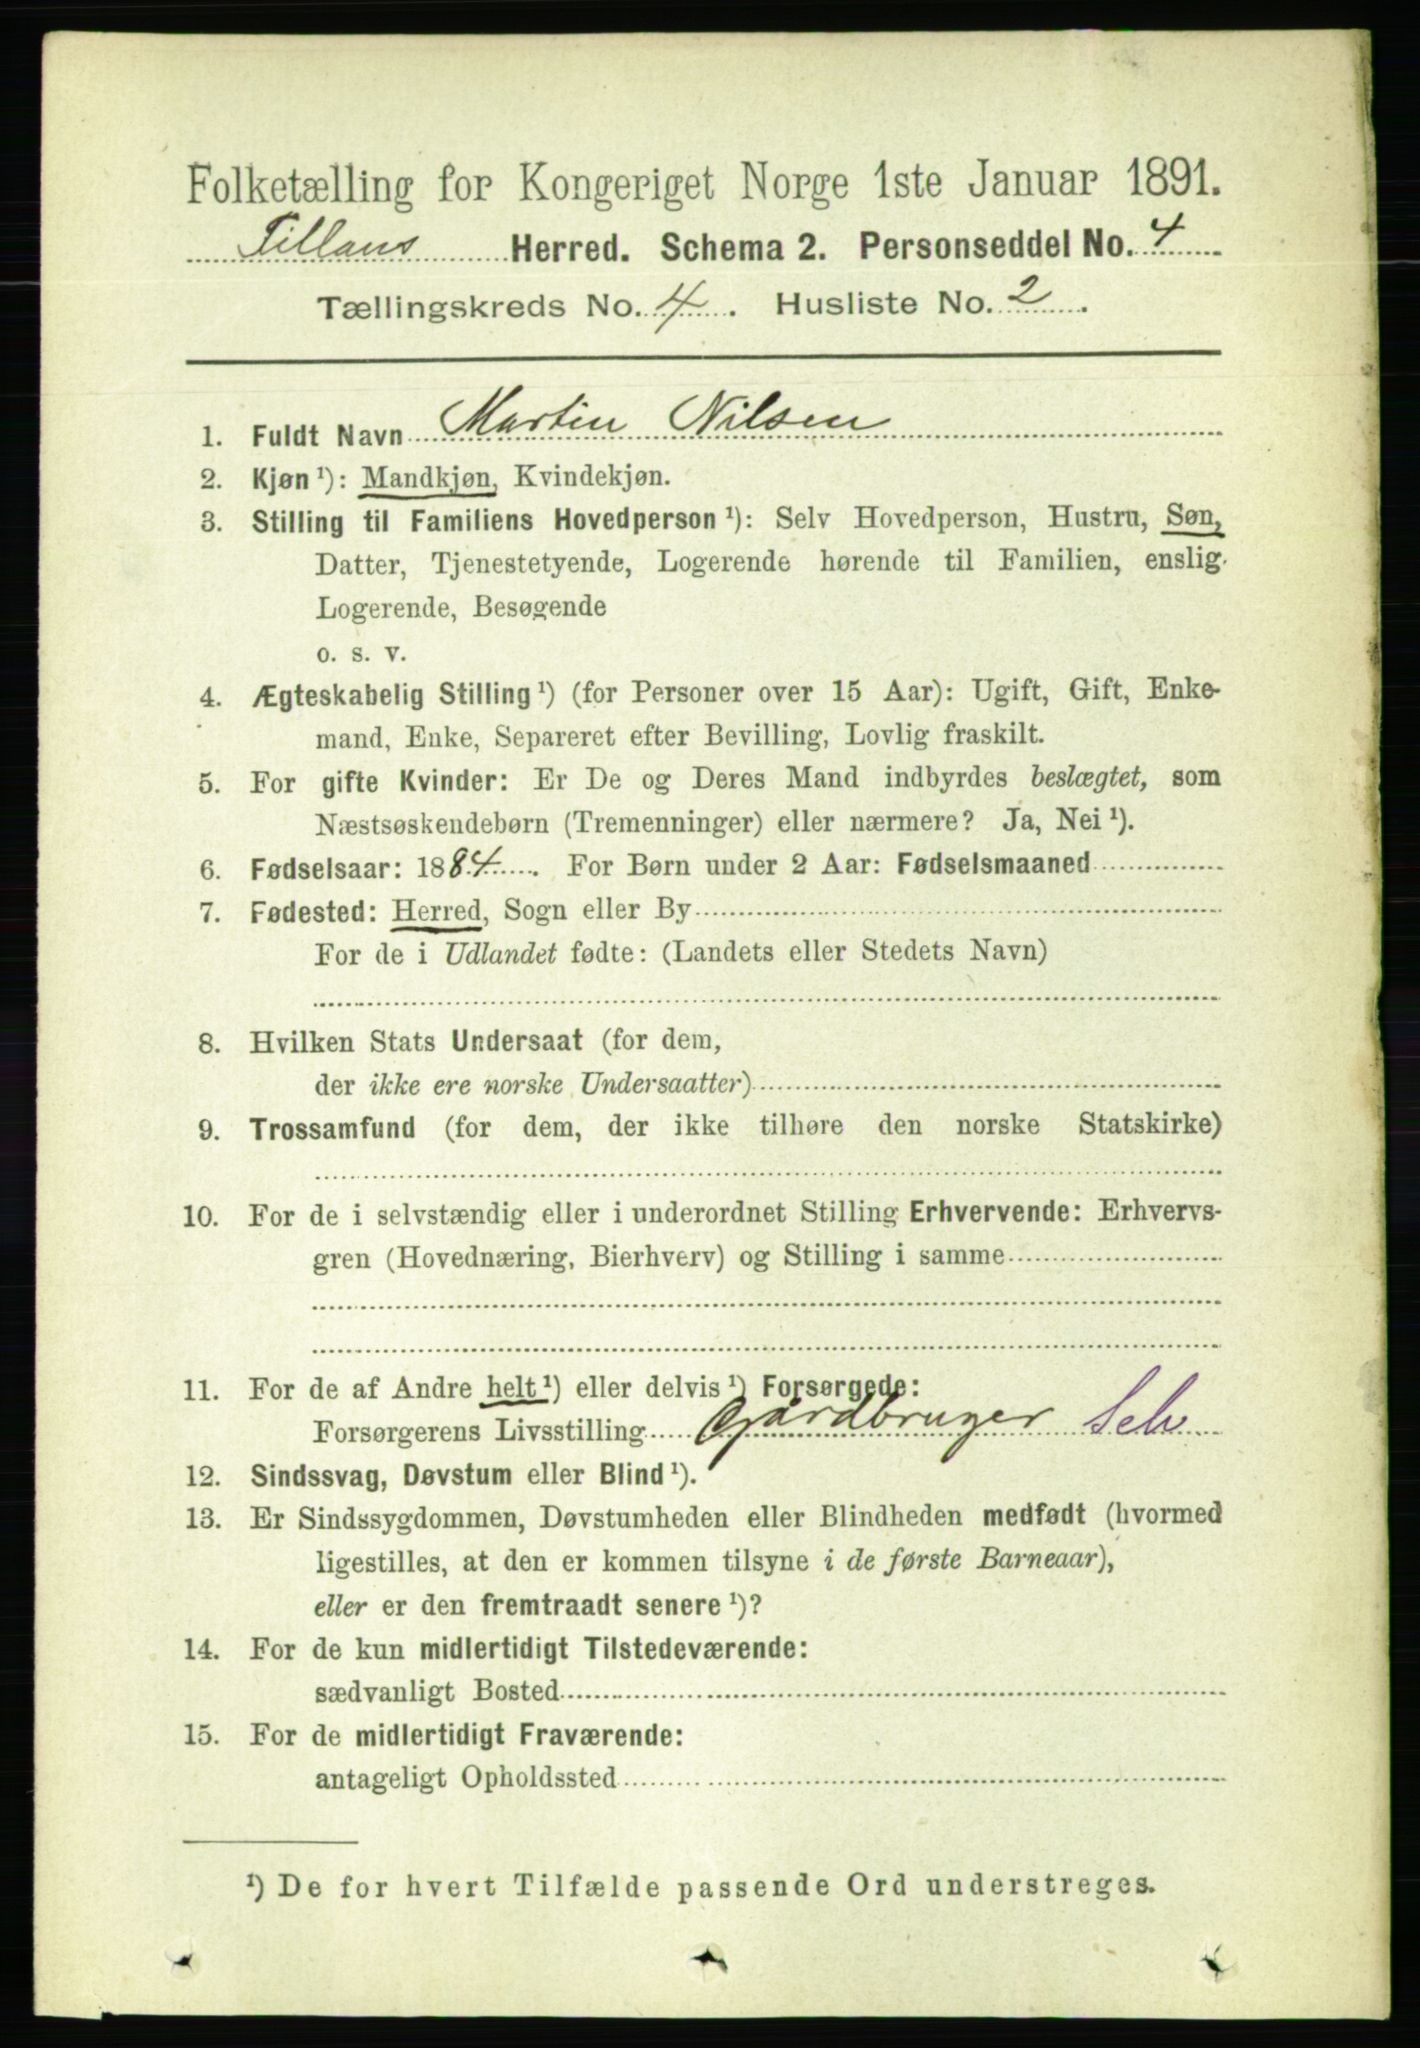 Folketælling for Kongeriget Norge 1ste Januar 1891.
Tillans Herred. Schema 2. Personseddel No. 4
Tællingskreds No. 4. Husliste No. 2.
1. Fuldt Navn Martin Nilsen
2. Kjøn ¹): Mandkjøn, Kvindekjøn.
3. Stilling til Familiens Hovedperson ¹): Selv Hovedperson, Hustru, Søn,
Datter, Tjenestetyende, Logerende hørende til Familien, enslig
Logerende, Besøgende
o. s. v.
4. Ægteskabelig Stilling ¹) (for Personer over 15 Aar): Ugift, Gift, Enke-
mand, Enke, Separeret efter Bevilling, Lovlig fraskilt.
5. For gifte Kvinder: Er De og Deres Mand indbyrdes beslægtet, som
Næstsøskendebørn (Tremenninger) eller nærmere? Ja, Nei ¹).
6. Fødselsaar: 1884. For Børn under 2 Aar: Fødselsmaaned
7. Fødested: Herred, Sogn eller By
For de i Udlandet fødte: (Landets eller Stedets Navn)
8. Hvilken Stats Undersaat (for dem,
der ikke ere norske Undersaatter)
9. Trossamfund (for dem, der ikke tilhøre den norske Statskirke)
10. For de i selvstændig eller i underordnet Stilling Erhvervende: Erhvervs-
gren (Hovednæring, Bierhverv) og Stilling i samme
11. For de af Andre helt ¹) eller delvis ¹) Forsørgede:
Forsørgerens Livsstilling Gårdbruger Selv
12. Sindssvag, Døvstum eller Blind ¹).
13. Er Sindssygdommen, Døvstumheden eller Blindheden medfødt (hvormed
ligestilles, at den er kommen tilsyne i de første Barneaar),
eller er den fremtraadt senere ¹)?
14. For de kun midlertidigt Tilstedeværende:
sædvanligt Bosted
15. For de midlertidigt Fraværende:
antageligt Opholdssted
¹) De for hvert Tilfælde passende Ord understreges.